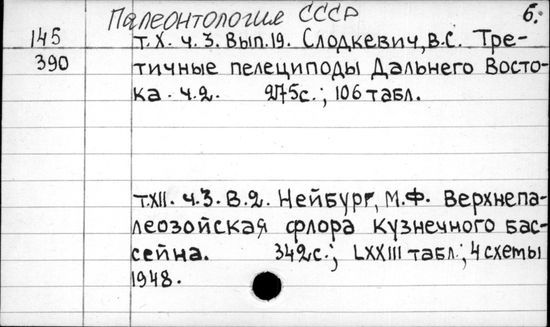 Палеонтология СССР 6.
145 т.X. ч.3. Вып.19. Слодкевич, В.С. Тре-
390 тичные пелециподы Дальнего Восто-
ка. ч.2. 275с.; 106 табл.
т.XII. ч.3. В.2. Нейбург, М.Ф. Верхнепа-
леозойская флора Кузнечного бас-
сейна. 342с.; LXXIII табл.; 4 схемы
1948.